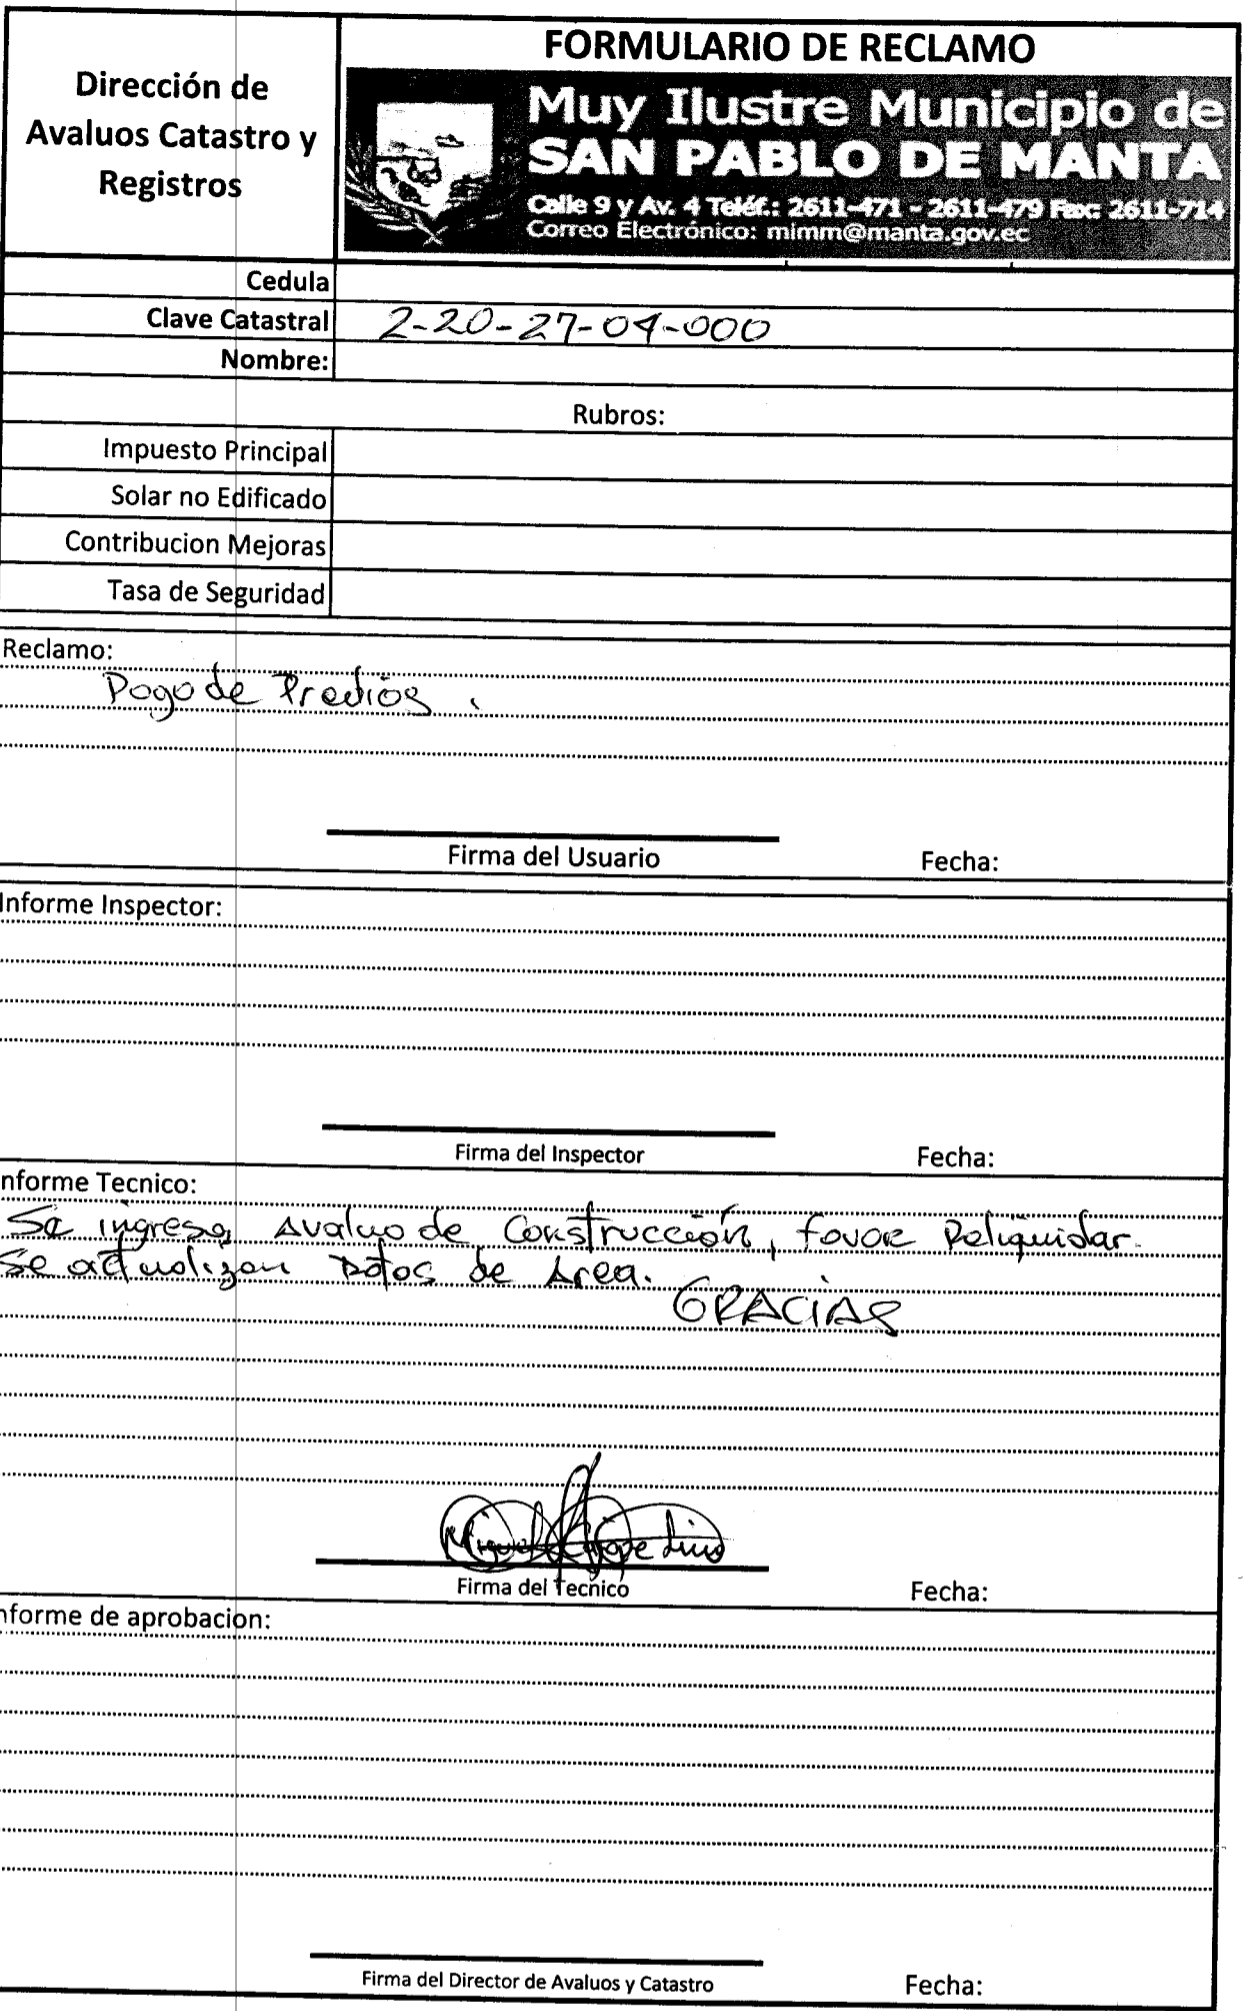 Dirección de
Avaluos Catastro y
Registros
FORMULARIO DE RECLAMO
Muy Ilustre Municipio de
SAN PABLO DE MANTA
Calle 9 y Av. 4 Teléf.: 2611-471 - 2611-479 Fax: 2611-714
Correo Electrónico: mimm@manta.gov.ec
Cedula
Clave Catastral 2-20-27-04-000
Nombre:
Rubros:
Impuesto Principal
Solar no Edificado
Contribucion Mejoras
Tasa de Seguridad
Reclamo:
Pago de Predios.
Firma del Usuario Fecha:
Informe Inspector:
Firma del Inspector Fecha:
nforme Tecnico:
Se ingresa Avaluo de Construcción, favor Reliquidar.
Se actualizan Datos de Area.
GRACIAS
Miguel
Firma del Tecnico Fecha:
nforme de aprobacion:
Firma del Director de Avaluos y Catastro Fecha: